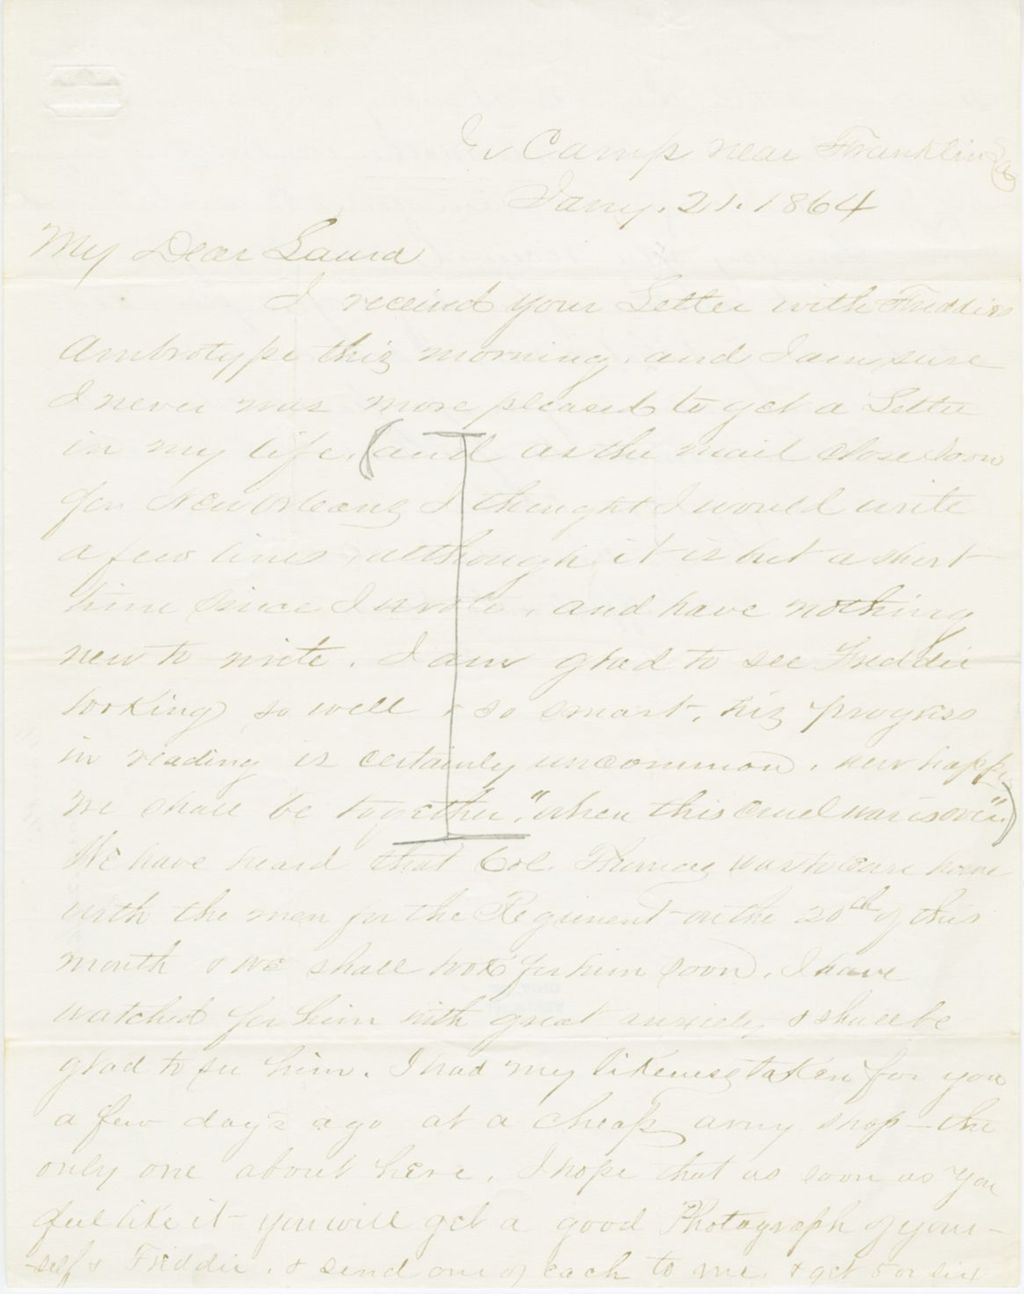 In Camp near Franklin La
Jany. 21. 1864
My Dear Laura
I received your Letter with Freddies
Ambrotype this morning, and I am sure
I never was more pleased to get a Letter
in my life, (and as the mail close soon
for New Orleans I thought I would write
a few lines although it is but a short
time since I wrote, and have nothing
new to write. I am glad to see Freddie
looking so well & so smart, his progress
in reading is certainly uncommon. how happy
we shall be together, "when this cruel war is over")
We have heard that Col. Thomas was to leave home
with the men for the Regiment on the 20th of this
month & we shall look for him soon. I have
watched for him with great anxiety & shall be
glad to see him. I had my likeness taken for you
a few days ago at a cheap army shop - the
only one about here. I hope that as soon as you
feel like it you will get a good Photograph of your-
self & Freddie, & send one of each to me, & get 5 or six